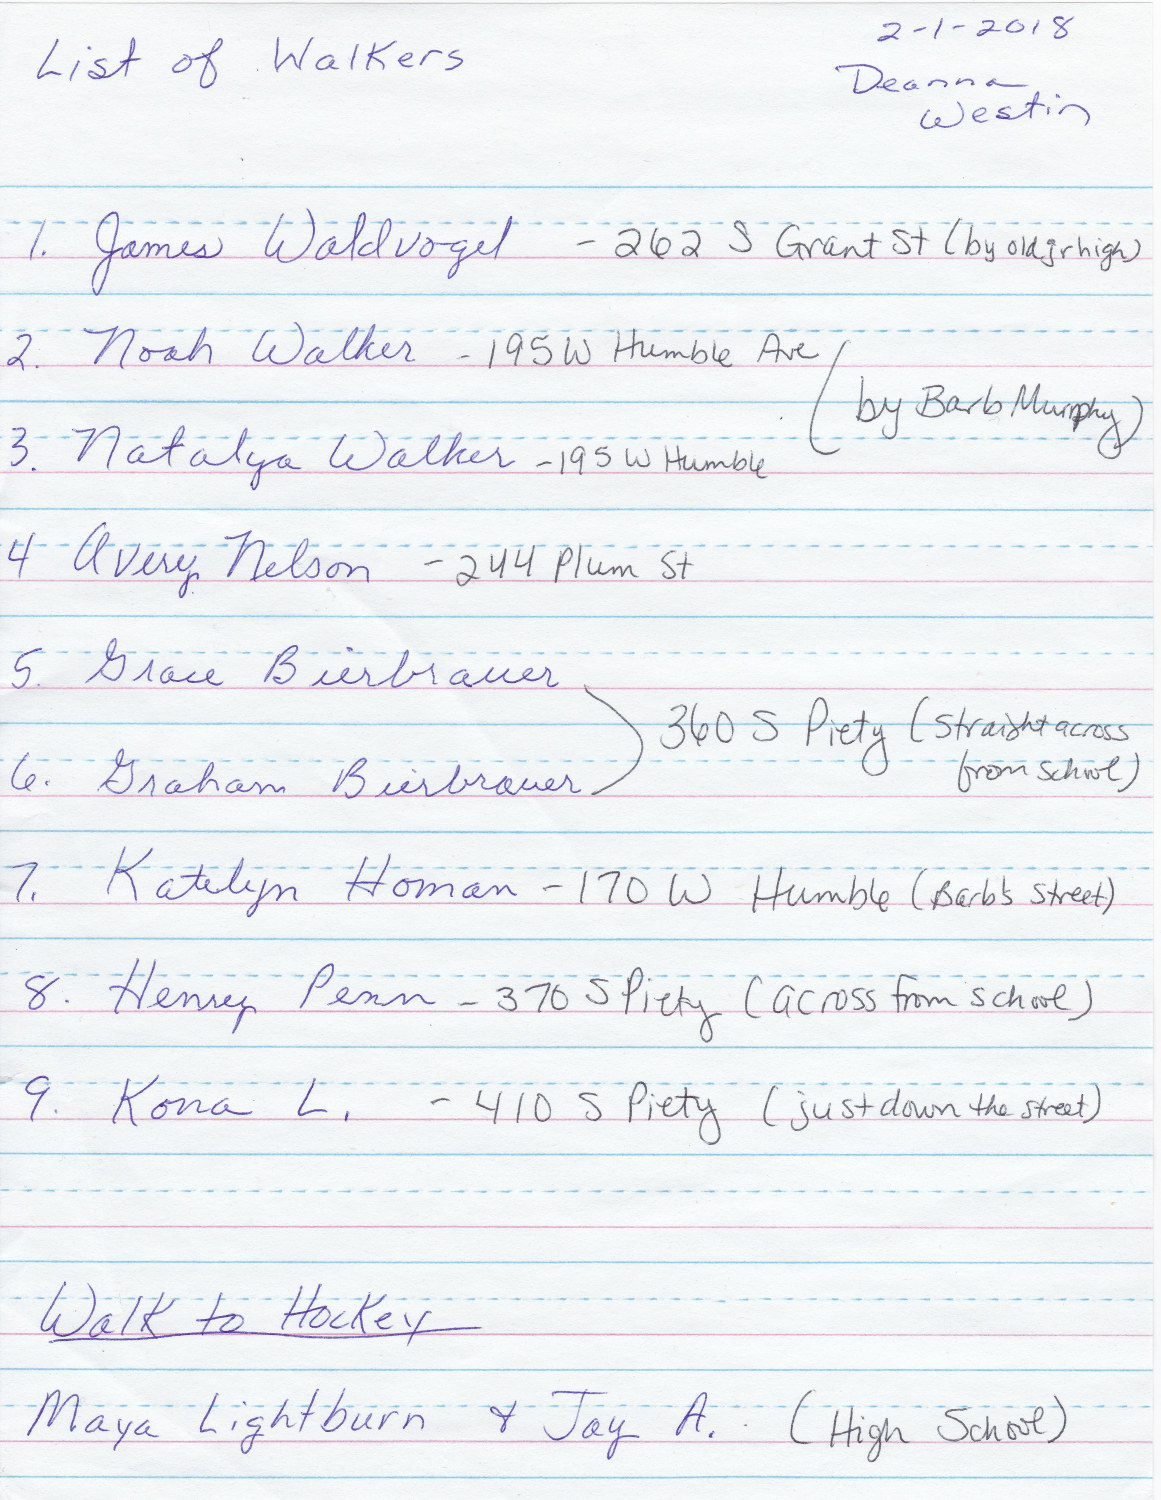 List of Walkers
2-1-2018
Deanna
Westin
1. James Waldvogel - 262 S Grant St (by old jr high)
2. Noah Walker - 195 W Humble Ave
(by Barb Murphy)
3. Natalya Walker - 195 W Humble
4 Avery Nelson - 244 Plum St
5. Grace Bierbrauer
360 S Piety (straight across
from school)
6. Graham Bierbrauer
7. Katelyn Homan - 170 W Humble (Barb's street)
8. Henry Penn - 370 S Piety (across from school)
9. Kona L. - 410 S Piety (just down the street)
Walk to Hockey
Maya Lightburn & Jay A. (High School)